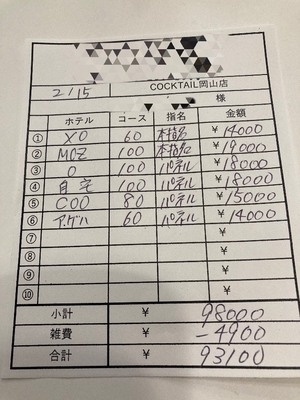 COCKTAIL岡山店
2/15 様
ホテル コース 指名 金額
① XO 60 本指名 ¥14000
② MOZ 100 本指名 ¥19000
③ O 100 パネル ¥18000
④ 自宅 100 パネル ¥18000
⑤ COO 80 パネル ¥15000
⑥ アゲハ 60 パネル ¥14000
⑦ ¥
⑧ ¥
⑨ ¥
⑩ ¥
小計 ¥ 98000
雑費 ¥ -4900
合計 ¥ 93100